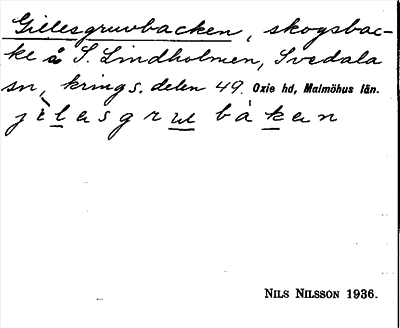 Gillesgruvbacken, skogsbac-
ke å S. Lindholmen, Svedala
sn, kring s. delen 49. Oxie hd, Malmöhus län.
jìlasgruu bàkan
NILS NILSSON 1936.